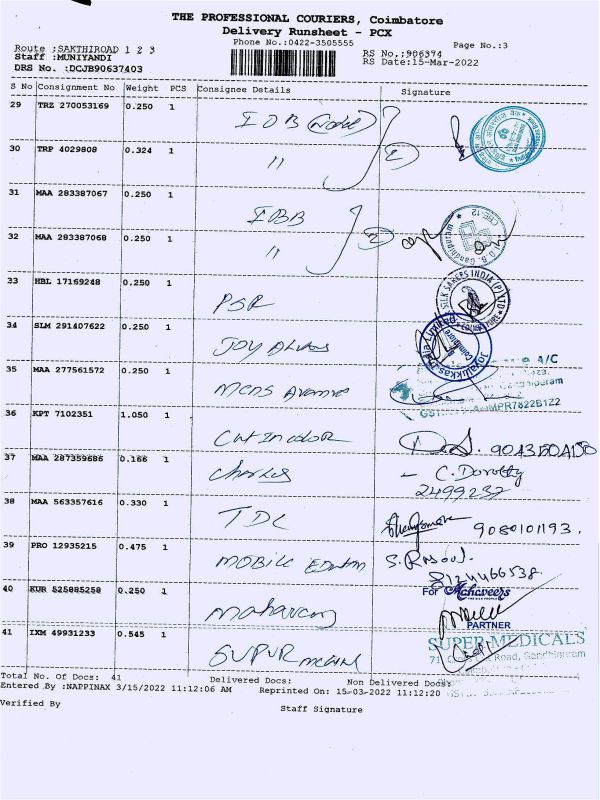 THE PROFESSIONAL COURIERS, Coimbatore
Delivery Runsheet - PCX
Phone No.:0422-3505555
Page No.:3
Route :SAKTHIROAD 1 2 3
Staff :MUNIYANDI
DRS No. :DCJB90637403
RS No.:906374
RS Date:15-Mar-2022
S No Consignment No Weight PCS Consignee Details Signature
29 TRZ 270053169 0.250 1 IOB
30 TRP 4029808 0.324 1 "
31 MAA 283387067 0.250 1
32 MAA 283387068 0.250 1 "
33 HBL 17169248 0.250 1 PSR
SILK SAREES INDIA (P) LTD
34 SLM 291407622 0.250 1
35 MAA 277561572 0.250 1 Mens Avenue
36 KPT 7102351 1.050 1
37 MAA 287359686 0.166 1 Charles
C. Dorothy
2499237
38 MAA 563357616 0.330 1 TDC
9080101193.
39 PRO 12935215 0.475 1 MOBILE
S. Rasool.
8124466538
40 KUR 525885258 0.250 1
For Mahaveers
PARTNER
41 IXM 49931233 0.545 1 SUPUR
SUPER MEDICALS
Road, Gandhipuram
Total No. Of Docs: 41 Delivered Docs: Non Delivered Docs:
Entered By :NAPPINAX 3/15/2022 11:12:06 AM Reprinted On: 15-03-2022 11:12:20
Verified By
Staff Signature